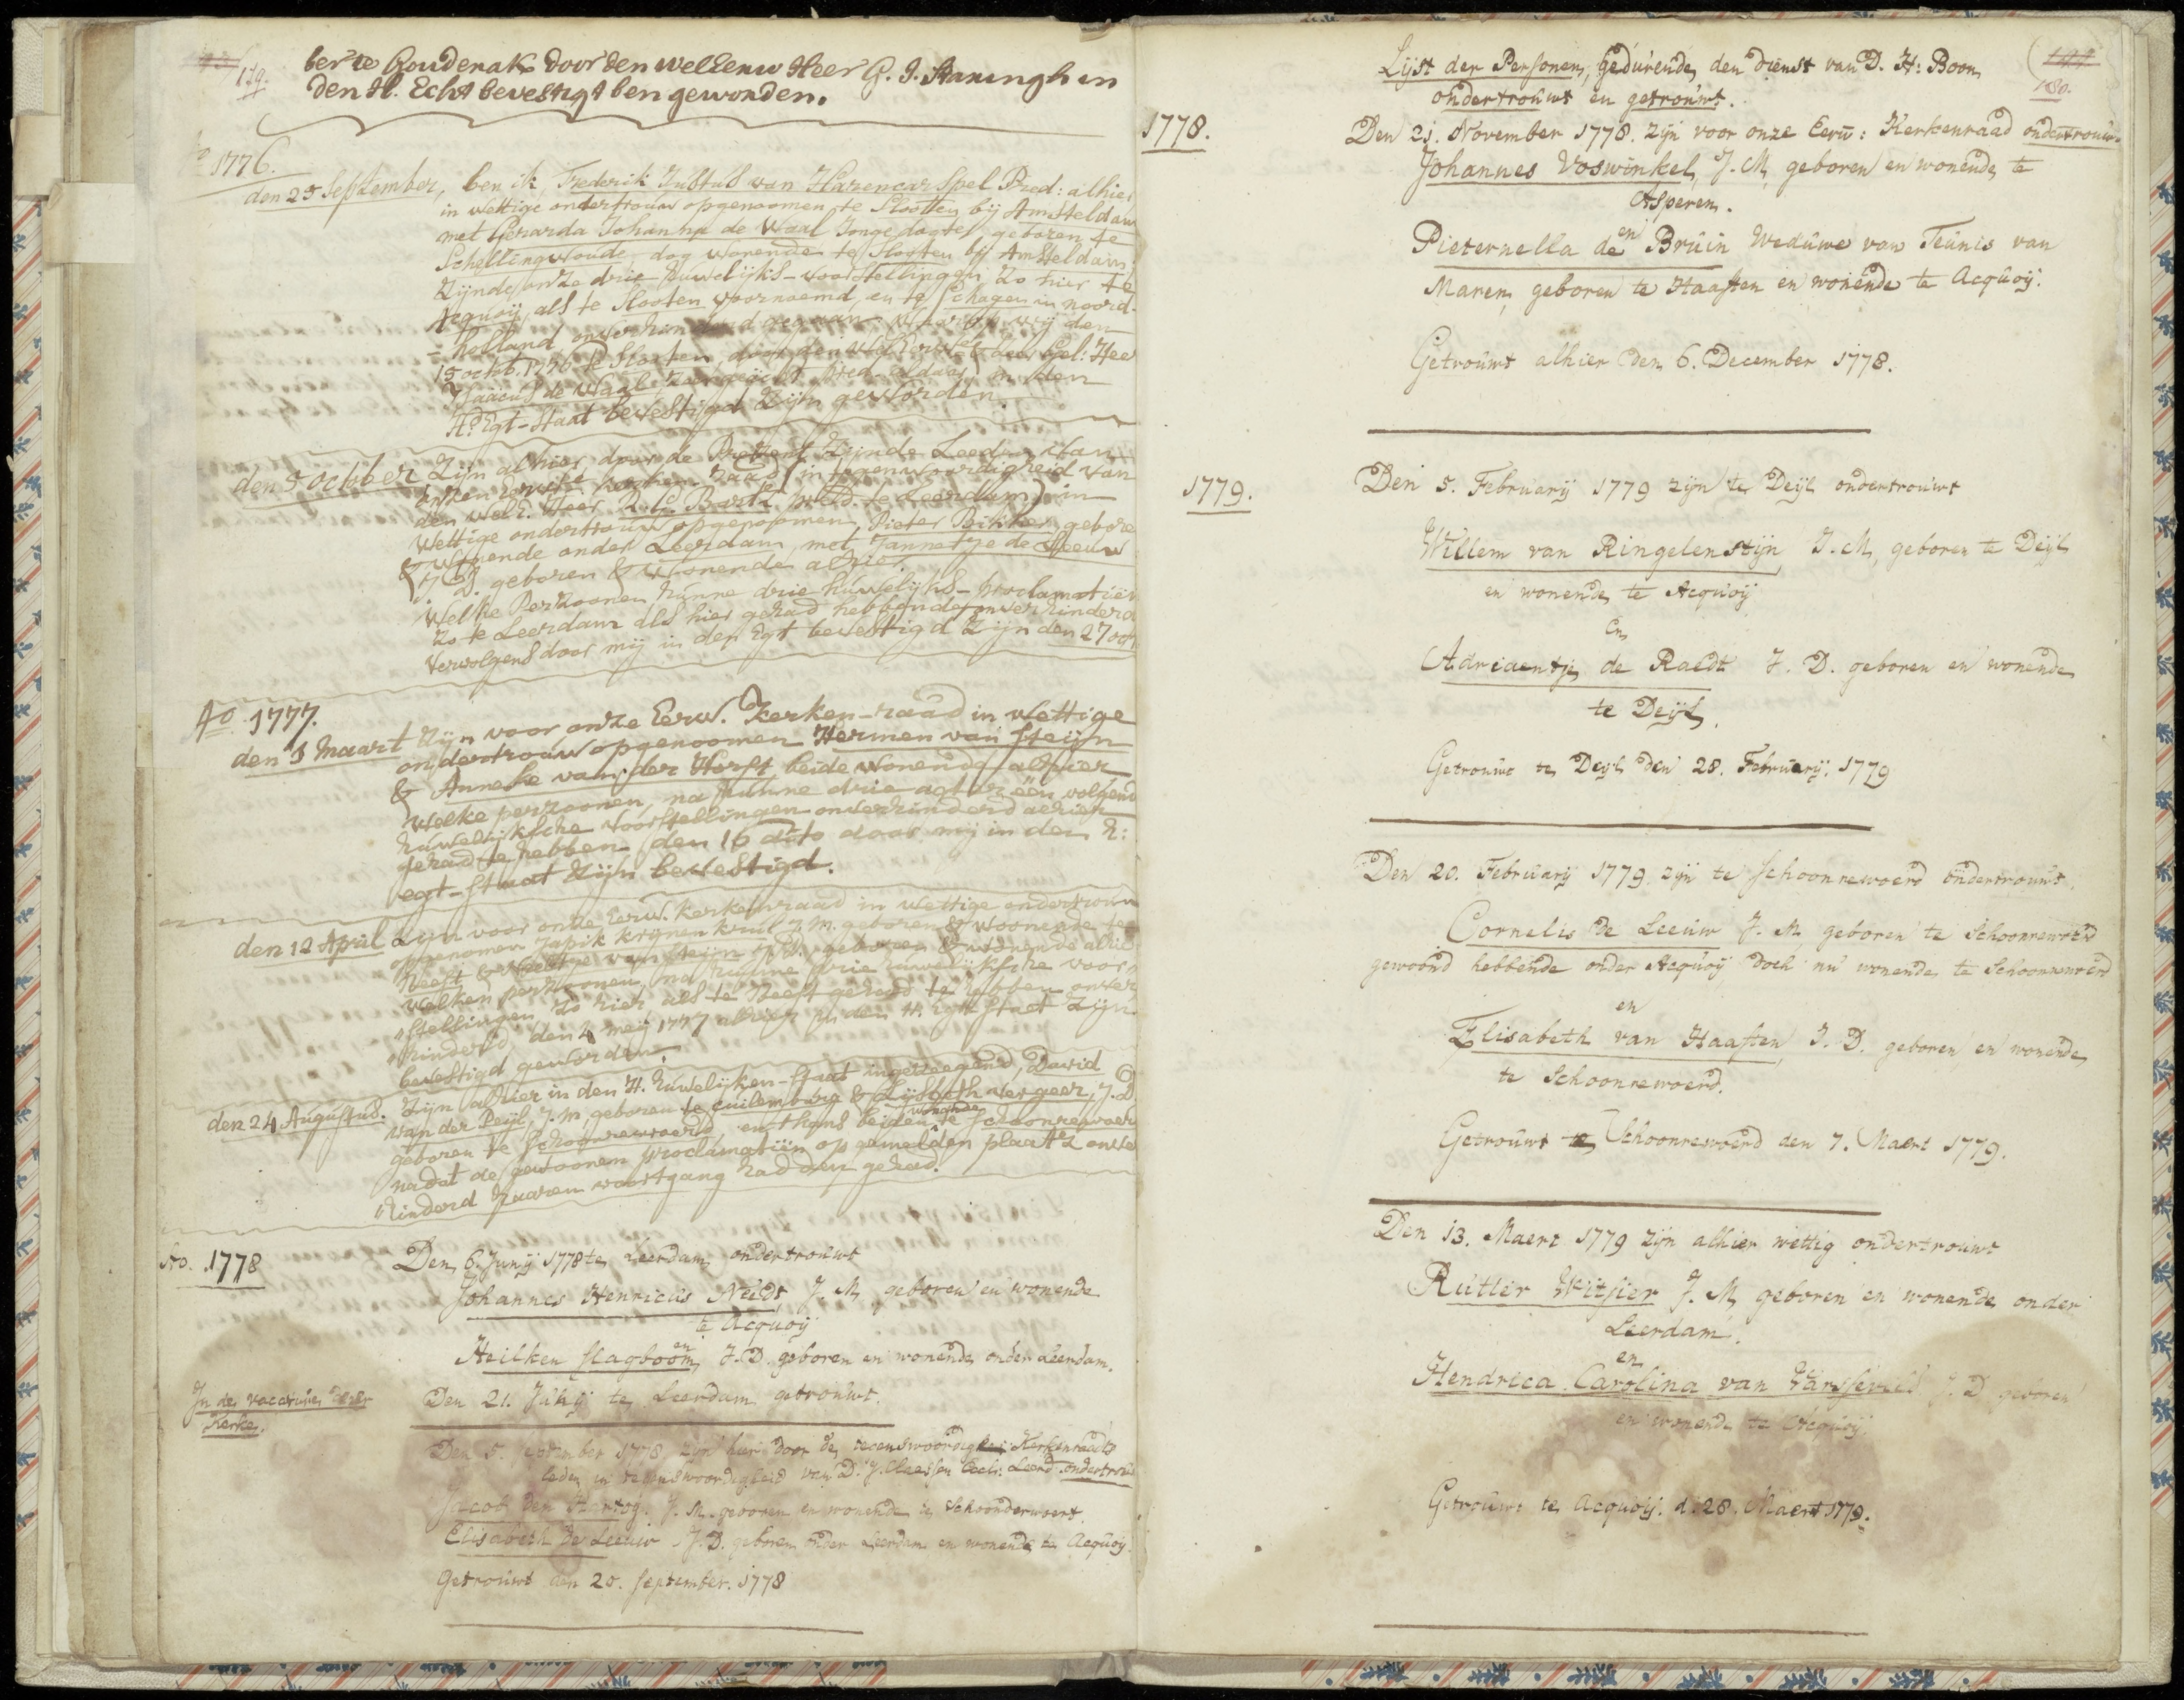 179.
ber te Gouderak door den welEerw Heer G. J. Staringh in
den H. Echt bevestigt ben geworden.
Ao 1776.
den 25 September, ben ik, Frederik Justus van Harencarspel Pred: alhier
in wettige ondertrouw opgenoomen te Slooten bij Amsteldam
met Gerarda Johanna de Waal Jonge dogter geboren te
Schellingwoude, dog wonende te Slooten bij Amsteldam,
zijnde onze drie huwelijks-voorstellingen, zo hier te
Acquoij, als te Slooten voornoemd, en te Schagen in noord-
-holland onverhinderd gegaan waarop wij den
15 octob. 1776 te Slooten, door den wel Eerw. & seer Gel: Heer
Isaäcus de Waal pred. aldaar, in den
H. Egt-Staat bevestigd zijn geworden.
den 5 october zijn alhier, door de Present zijnde Leeden van
onzen Eerw. kerken-raad (in tegenwoordigheid van
den WelE. Heer R. C. Barts pred. te Leerdam) in
wettige ondertrouw opgenoomen, Pieter Bikker gebore
& wonende onder Leerdam, met Jannetje de Leeuw
J. D. geboren & wonende alhier.
Welke Perzoonen hunne drie huwelijks-proclamatiën
zo te Leerdam als hier gehad hebbende onverhinderd
vervolgens door mij in den Egt bevestigd zijn den 27 oct
Ao. 1777.
den 1 Maart zijn voor onze Eerw. kerken-raad in wettige
ondertrouw opgenoomen Hermen van Steijn
& Anneke van der Horst beide wonende alhier
welke perzoonen, na hunne drie agter één volgend
huwelijksche voorstellingen onverhinderd alhier
gehad te hebben den 16 dito door mij in den H:
egt-staat zijn bevestigd.
den 12 April zijn voor onze Eerw. kerkenraad in wettige ondertrouw
opgenomen Japik Krijnen Krul J. M. geboren & woonende te
Heeft & van Steijn J. D. geboren & wonende alhie
welken perzoonen, na hunne drie huwelijksche voor
"stellingen zo hier als te Heeft gehad te hebben onver
"hinderd, den 4 meij 1777 alhier in den H. Egt staet zijn
bevestigd geworden.
den 24 Augustus. Zijn alhier in den H. huwelijken-staat ingezeegend, David
van der Peijl, J. M. geboren te Cuilemburg & Lijsbeth Vergeer, J. D.
geboren te Schoonrewoerd, en thans beiden wonende te Schoonrewoer
nadat de gewoonen proclamatiën op gemelden plaats onve
"hinderd haaren voortgang hadden gehad.
Ao. 1778
Den 6. Junij 1778 te Leerdam ondertrouwt
Johannes Henricus Neids, J. M. geboren en wonende
te Acquoij
en
Heilken Slagboom, J. D. geboren en wonende onder Leerdam.
Den 21. Junij te Leerdam getrouwt.
In de vacature deser
Kerke.
Den 5. september 1778 zijn hier door de tegenswoordige Kerkenraads
leden in tegenswoordigheid van D. J. Claessen Eccl: Leerd ondertrouw
Jacob den Hartog. J. M. geboren en wonende te Schoonderwoert.
Elisabeth de Leeuw J. D. geboren onder Leerdam en wonende te Acquoij.
Getrouwt den 20. September. 1778
180.
Lijst der Personen, Gedurende den dienst van D. H: Boon
ondertrouwt en getrouwt.
1778.
Den 21. November 1778. zijn voor onze Eerw: Kerkenraad ondertrouw-
Johannes Voswinkel, J. M. geboren en wonende te
Asperen.
en
Pieternella de Bruin Weduwe van Teunis van
Maren, geboren te Haaften en wonende te Acquoij.
Getrouwt alhier den 6. December 1778.
1779.
Den 5. Februarij 1779 zijn te Deijl ondertrouwt
Willem van Ringelenstijn J. M. geboren te Deijl
en wonende te Acquoij
en
Adriaentje de Raedt J. D. geboren en wonende
te Deijl.
Getrouwt te Deijl den 28. Februarij. 1779
Den 20. Februarij 1779. zijn te Schoonrewoerd ondertrouwt.
Cornelis de Leeuw J. M. geboren te Schoonrewoerd
gewoond hebbende onder Acquoij doch nu wonende te Schoonrewoerd
en
Elisabeth van Haaften, J. D. geboren en wonende
te Schoonrewoerd.
Getrouwt te Schoonrewoerd den 7. Maert 1779.
Den 13. Maert 1779 zijn alhier wettig ondertrouwt
Rutler Witsier J. M. geboren en wonende onder
Leerdam.
en
Hendrica Carolina van Varsseveld J. D. geboren
en wonende te Acquoij.
Getrouwt te Acquoij. d. 28. Maert 1779.